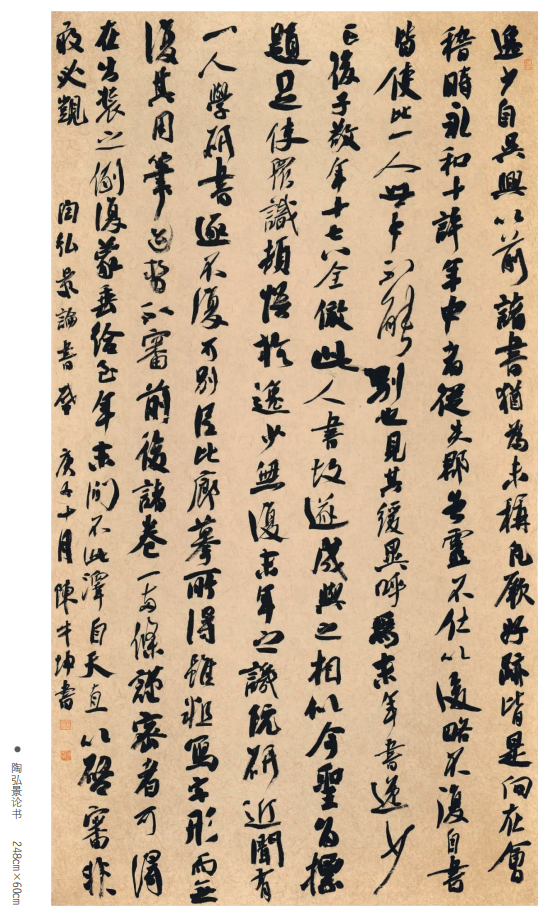 逸少自吳興以前諸書猶為未稱凡厥好跡皆是向在會
稽時永和十許年中者從失郡告靈不仕以後略不復自書
皆使此一人世中不能別也見其緩異呼為末年書逸少
亡後子敬年十七八全倣此人書故遂成與之相似今聖旨標
題足使眾識頓悟於逸少無復末年之譏阮研近聞有
一人學研書遂不復可別臣比廓摹所得雖粗寫字形而無
復其用筆跡勢不審前後諸卷一兩條謹密者可得
在出裝之例復蒙垂給至年末間不此澤自天直以啓審非
敢必覬 陶弘景論書啓 庚子十月 陳坤書
陶弘景论书 248cm×60cm